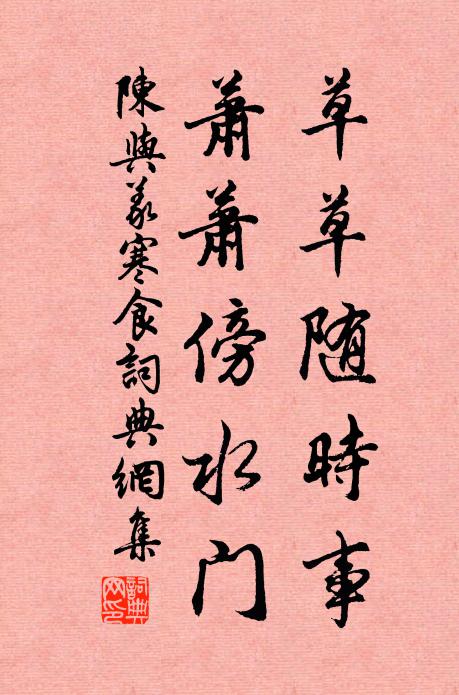 草草随時事
蕭蕭傍水門
陳與義寒食詞典網集
詞典网印